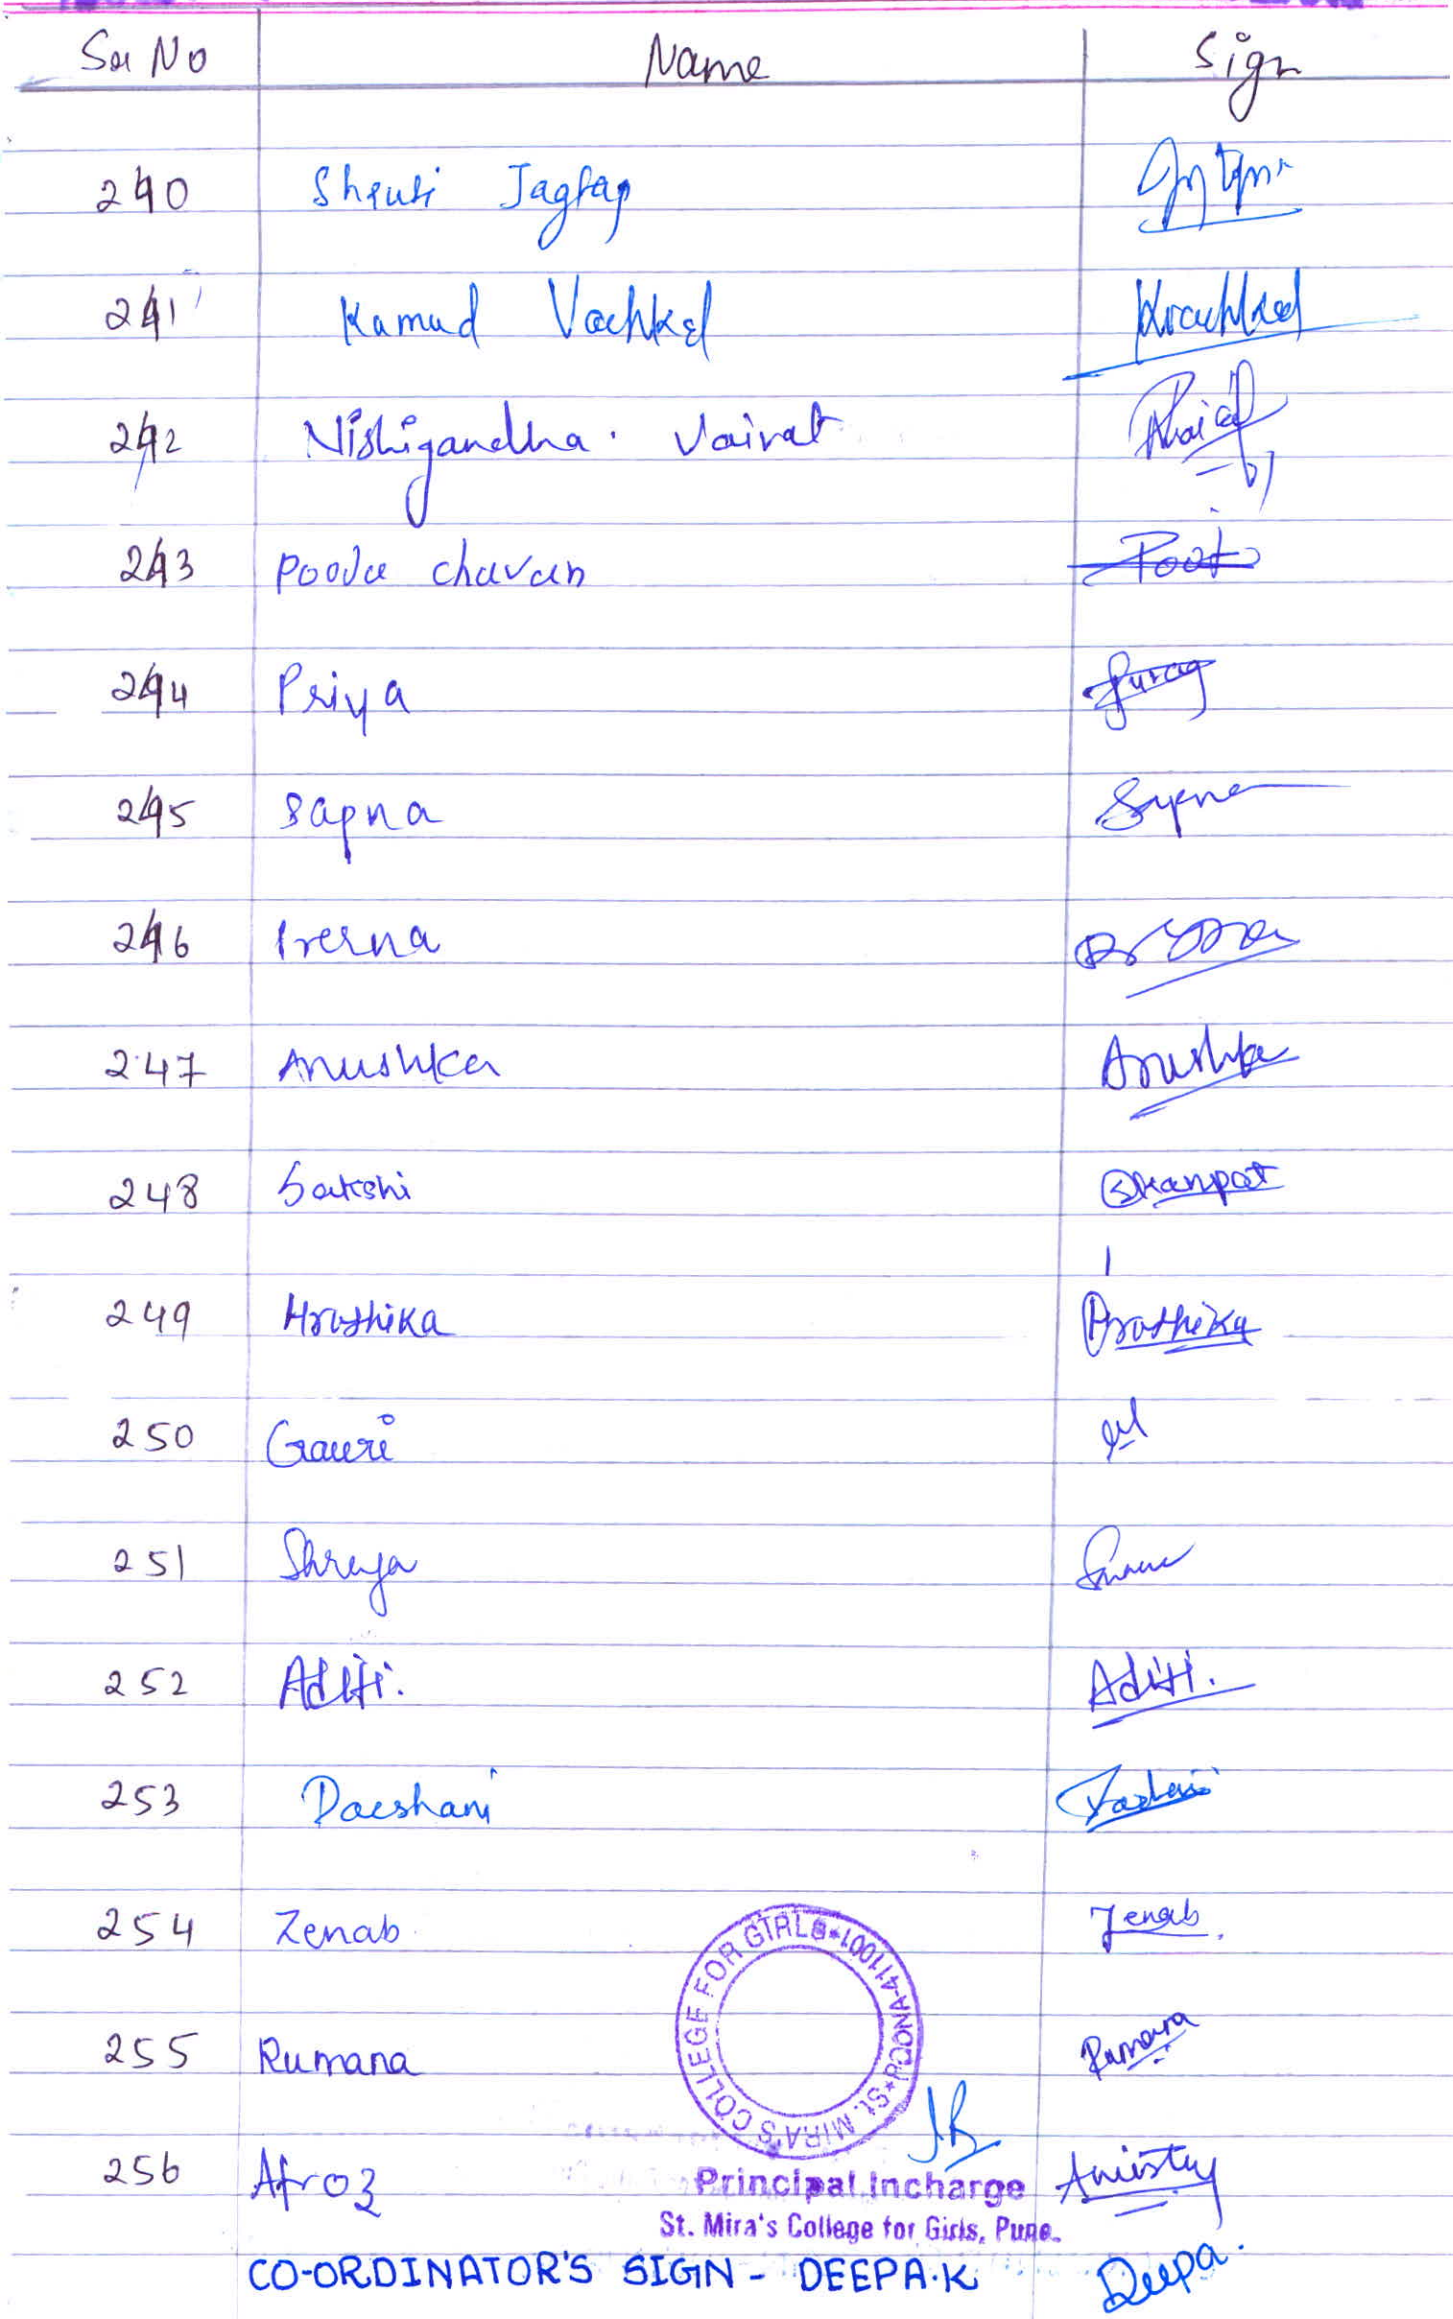 Sr No Name Sign
240 Shruti Jagtap
241 Kamud Vachkal Kvachkal
242 Nishigandha. Vairat
243 Pooja chavan Pooja
244 Priya
245 Sapna Sapna
246 Prerna
247 Anushka Anushka
248 Sakshi
249 Hruthika Hruthika
250 Gauri
251 Shreya
252 Aditi. Aditi.
253 Darshani
254 Zenab Zenab
255 Rumana Rumana
256 Afroz
St. MIRA'S COLLEGE FOR GIRLS*POONA-411001*
JB
Principal Incharge
St. Mira's College for Girls, Pune.
CO-ORDINATOR'S SIGN - DEEPA.K Deepa.